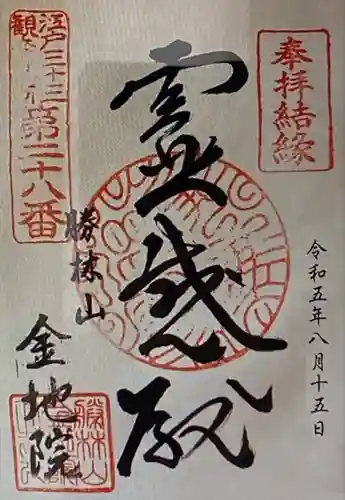 奉拝結緣
令和五年八月十五日
靈感殿
江戸三十三
観音札所第二十八番
勝林山
金地院
勝林山